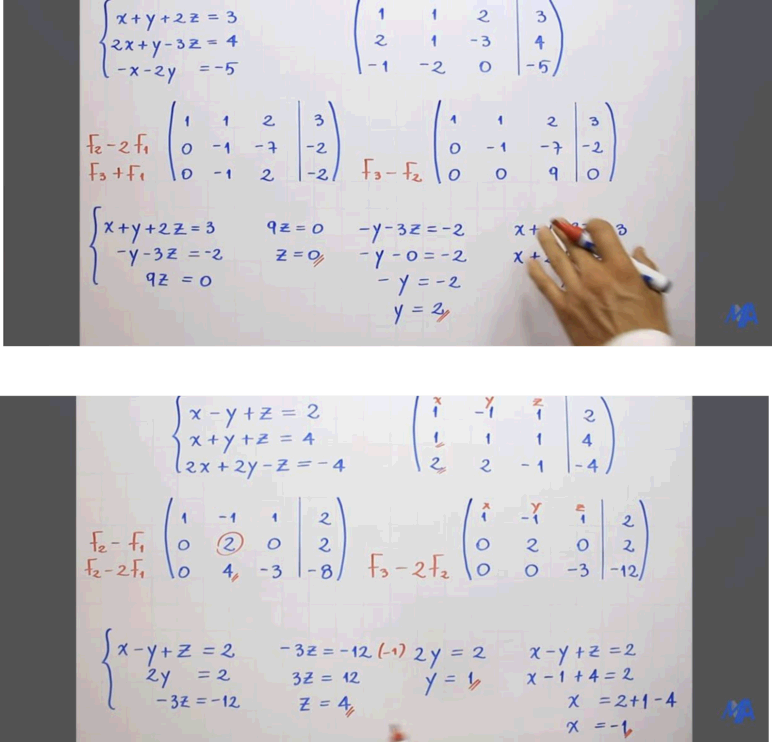 x+y+2z = 3
2x+y-3z = 4
-x-2y = -5
1 1 2 | 3
2 1 -3 | 4
-1 -2 0 | -5
f₂-2f₁
f₃+f₁
1 1 2 | 3
0 -1 -7 | -2
0 -1 2 | -2
f₃-f₂
1 1 2 | 3
0 -1 -7 | -2
0 0 9 | 0
x+y+2z = 3
-y-3z = -2
9z = 0
9z = 0
z = 0
-y-3z = -2
-y-0 = -2
-y = -2
y = 2
x+ 3
x+
x-y+z = 2
x+y+z = 4
2x+2y-z = -4
x y z
1 -1 1 | 2
1 1 1 | 4
2 2 -1 | -4
f₂-f₁
f₂-2f₁
1 -1 1 | 2
0 2 0 | 2
0 4 -3 | -8
f₃-2f₂
x y z
1 -1 1 | 2
0 2 0 | 2
0 0 -3 | -12
x-y+z = 2
2y = 2
-3z = -12
-3z = -12 (-1)
3z = 12
z = 4
2y = 2
y = 1
x-y+z = 2
x-1+4 = 2
x = 2+1-4
x = -1